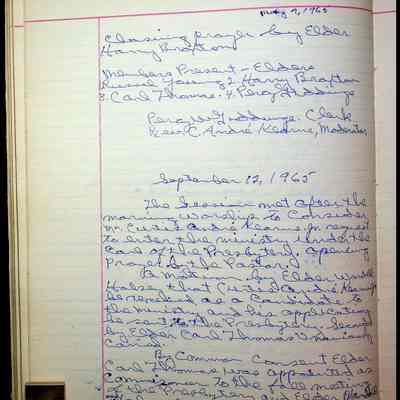 May 9, 1965
Closing prayer by Elder
Harry Brafton
Members Present - Elders
Russel 2. Harry Brafton
3. Carl Thomas. 4. Percy Giddings
Percy Giddings. Clerk
Rev. C. André Kearns, Moderator
September 12, 1965
The Session met after the
morning worship to Consider
Mr. Curtis André Kearns Jr. request
to enter the ministry under the
Care of the Presbytery. Opening
Prayer by the Pastor.
A Motion by Elder
Halsey that Curtis André Kearns
be received as a Candidate to
the ministry and his application
be sent to the Presbytery. Second
by Elder Carl Thomas Unanimously
Carried.
By Common Consent Elder
Carl Thomas was appointed as
Commissioner to the fall meeting
of the Presbytery and Elder